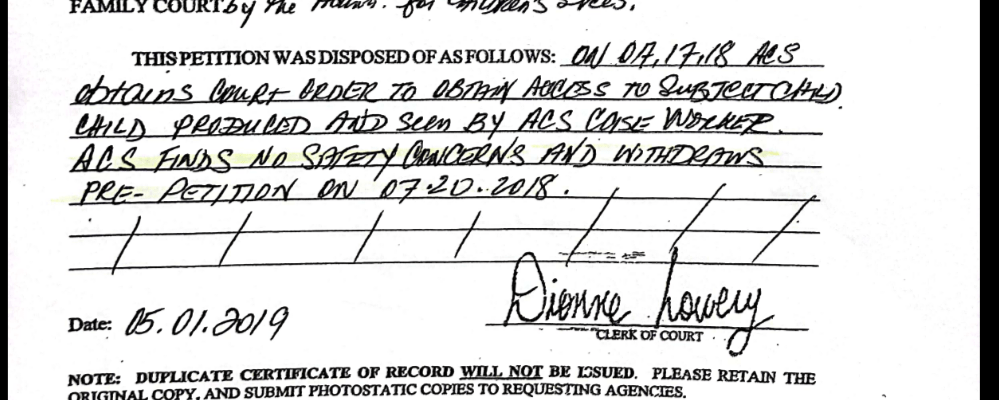 FAMILY COURT by the Admin. for Children's Svces.
THIS PETITION WAS DISPOSED OF AS FOLLOWS: ON 07,17,18 ACS
obtains COURT ORDER TO OBTAIN ACCESS TO SUBJECT CHILD.
CHILD PRODUCED AND Seen BY ACS CASE WORKER.
ACS FINDS NO SAFETY CONCERNS AND WITHDRAWS
PRE-PETITION ON 07.20.2018.
Date: 05.01.2019
Dionne Lowery
CLERK OF COURT
NOTE: DUPLICATE CERTIFICATE OF RECORD WILL NOT BE ISSUED. PLEASE RETAIN THE
ORIGINAL COPY, AND SUBMIT PHOTOSTATIC COPIES TO REQUESTING AGENCIES.